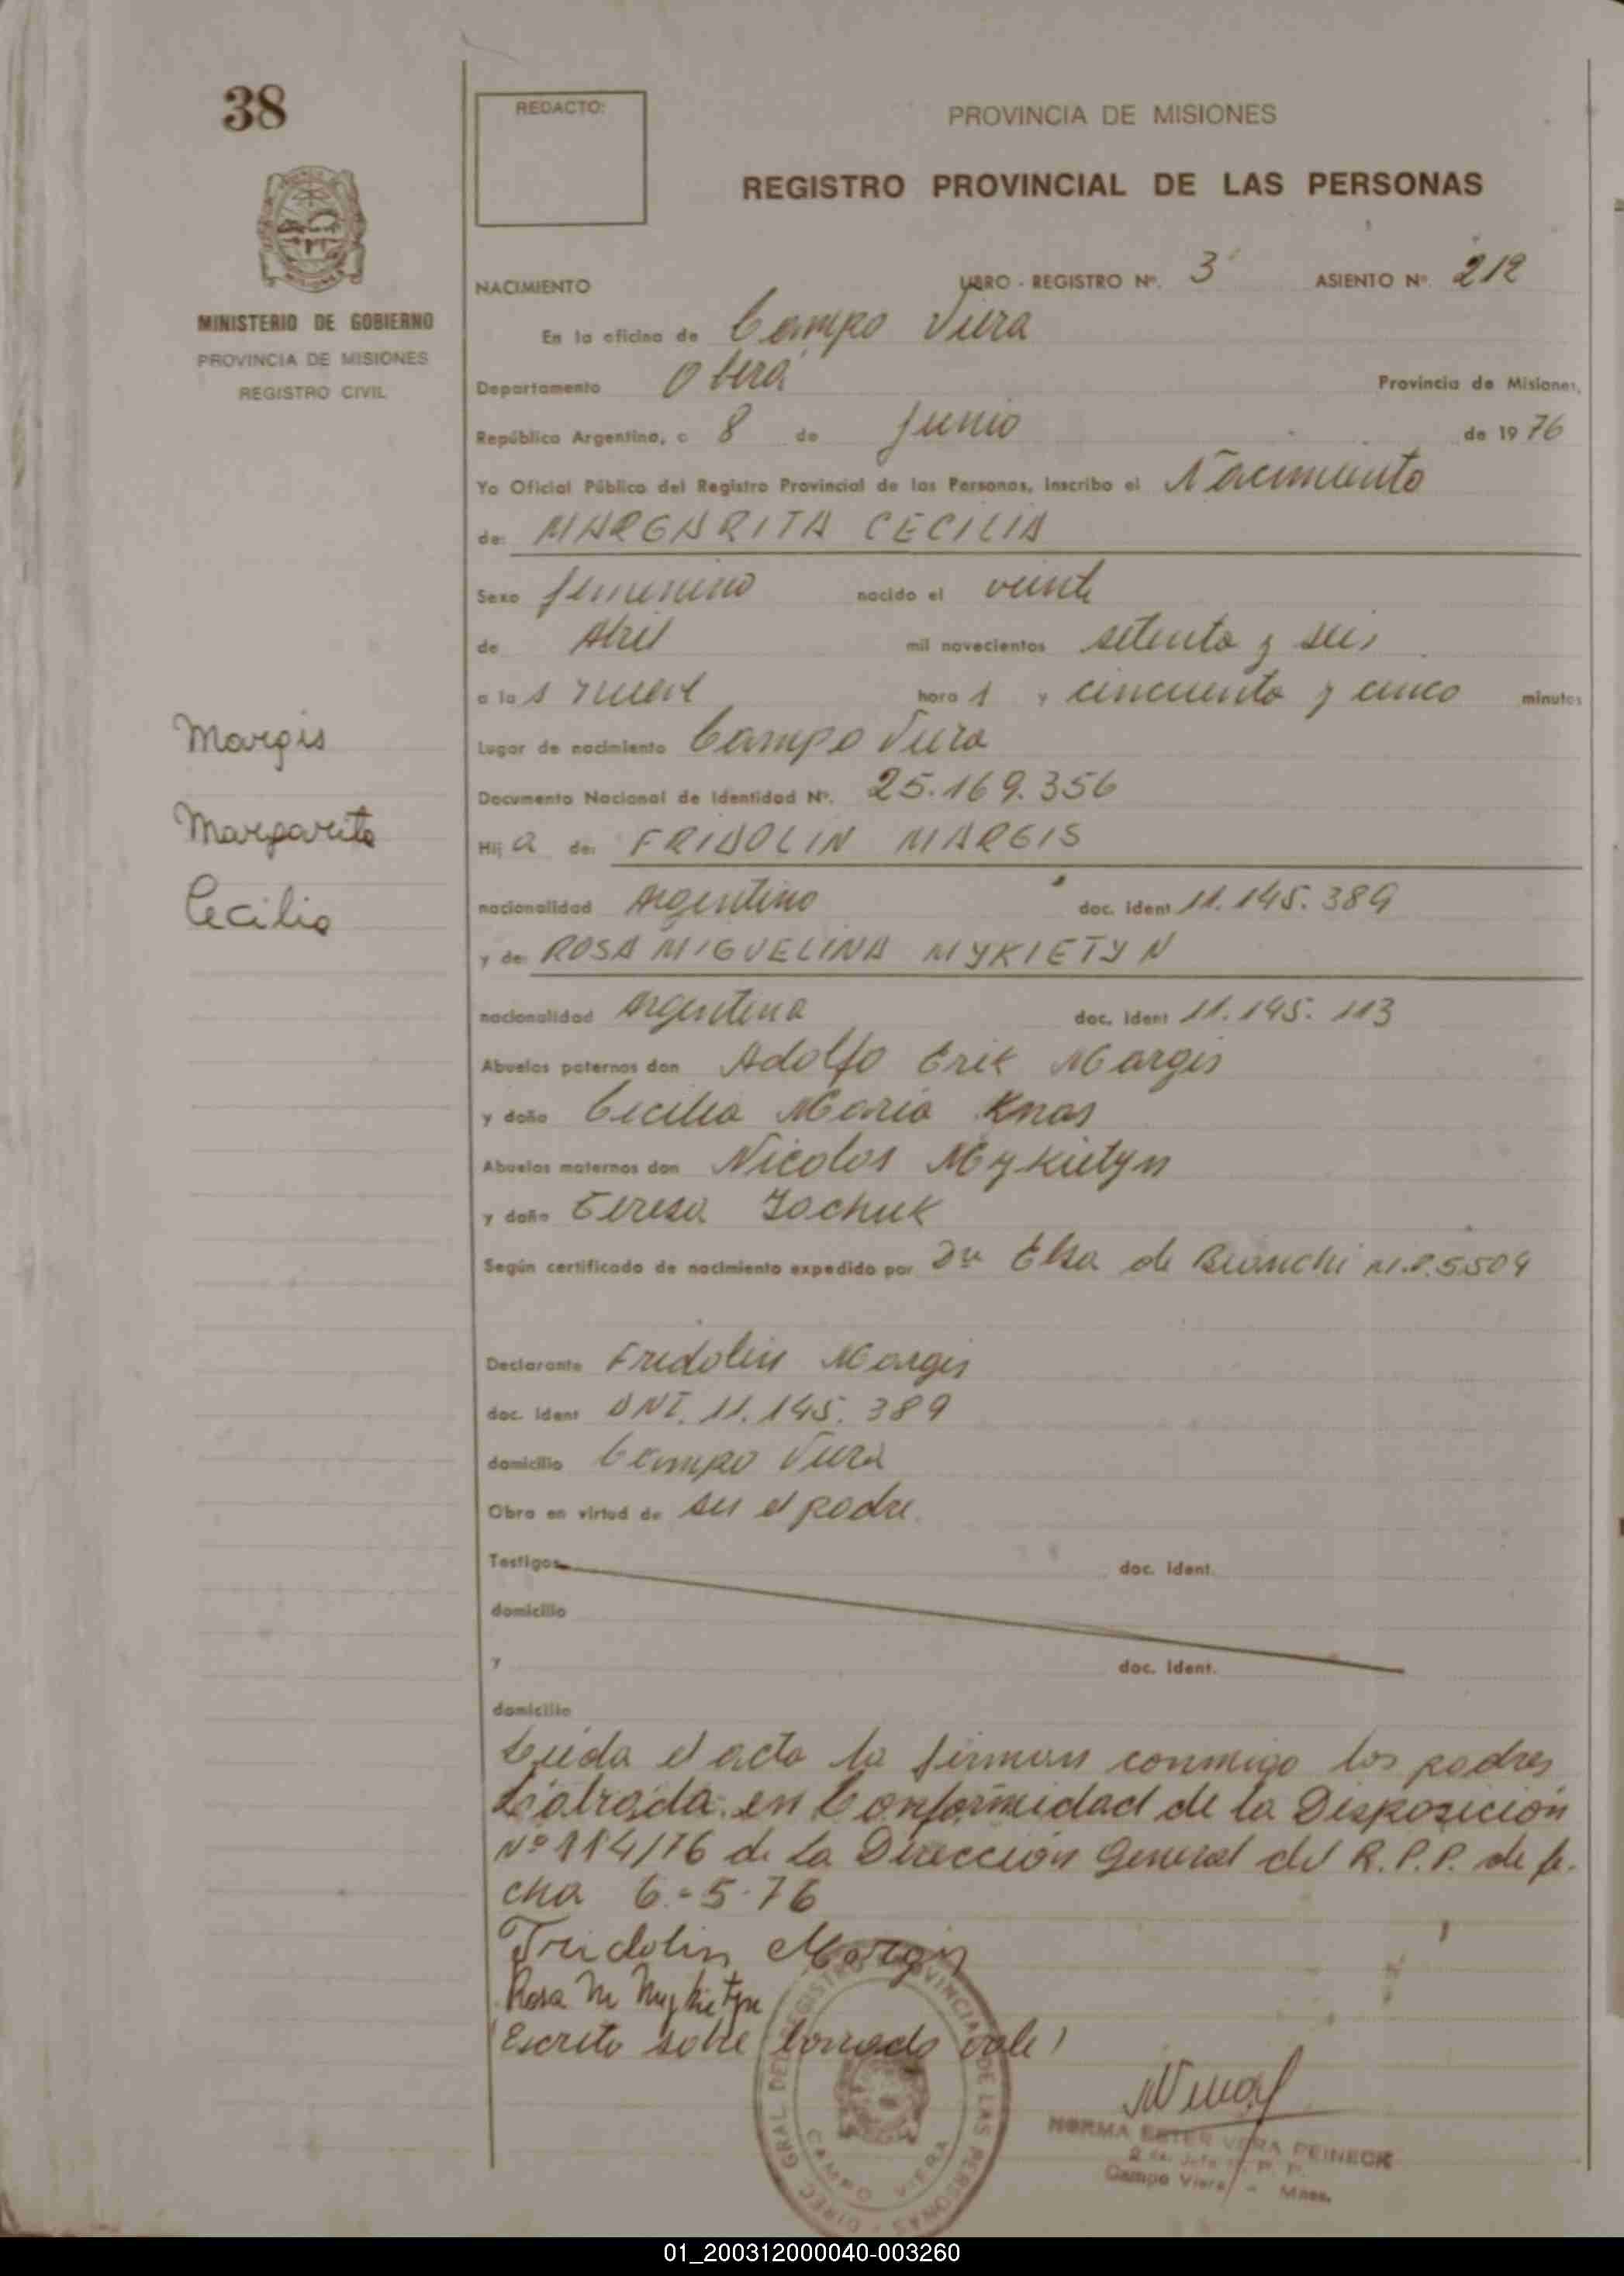 38
REDACTO:
PROVINCIA DE MISIONES
REGISTRO PROVINCIAL DE LAS PERSONAS
MINISTERIO DE GOBIERNO
PROVINCIA DE MISIONES
REGISTRO CIVIL
NACIMIENTO LIBRO - REGISTRO Nº. 3 ASIENTO Nº. 212
En la oficina de Campo Viera
Departamento Oberá Provincia de Misiones,
República Argentina, a 8 de Junio de 1976
Yo Oficial Público del Registro Provincial de las Personas, inscribo el Nacimiento
de: MARGARITA CECILIA
Sexo femenino nacido el veinte
de Abril mil novecientos setenta y seis
a las nueve horas y cincuenta y cinco minutos
Lugar de nacimiento Campo Viera
Documento Nacional de Identidad Nº. 25.169.356
Hija de: FRIDOLIN MARGIS
nacionalidad Argentino doc. ident 11.145.389
y de ROSA MIGUELINA MYKIETYN
nacionalidad Argentina doc. ident 11.145.113
Abuelos paternos don Adolfo Erik Margis
y doña Cecilia Maria Knas
Abuelos maternos don Nicolas Mykietyn
y doña Teresa Jachuk
Según certificado de nacimiento expedido por Dra Elsa de Bianchi M.P.5504
Margis
Margarita
Cecilia
Declarante Fridolin Margis
doc. ident DNI. 11.145.389
domicilio Campo Viera
Obra en virtud de ser el padre.
Testigos doc. ident.
domicilio
y doc. ident.
domicilio
Leida el acta la firman conmigo los padres
Labrada en Conformidad de la Disposición
Nº 114/76 de la Dirección General del R.P.P. de fe-
cha 6-5-76
Fridolin Margis
Rosa M Mykietyn
(Escrito sobre borrado vale)
DIREC. GRAL DEL REGISTRO PROVINCIAL DE LAS PERSONAS
CAMPO VIERA
NORMA ESTER VERA PEINECK
Campo Viera - Mnes.
01_200312000040-003260